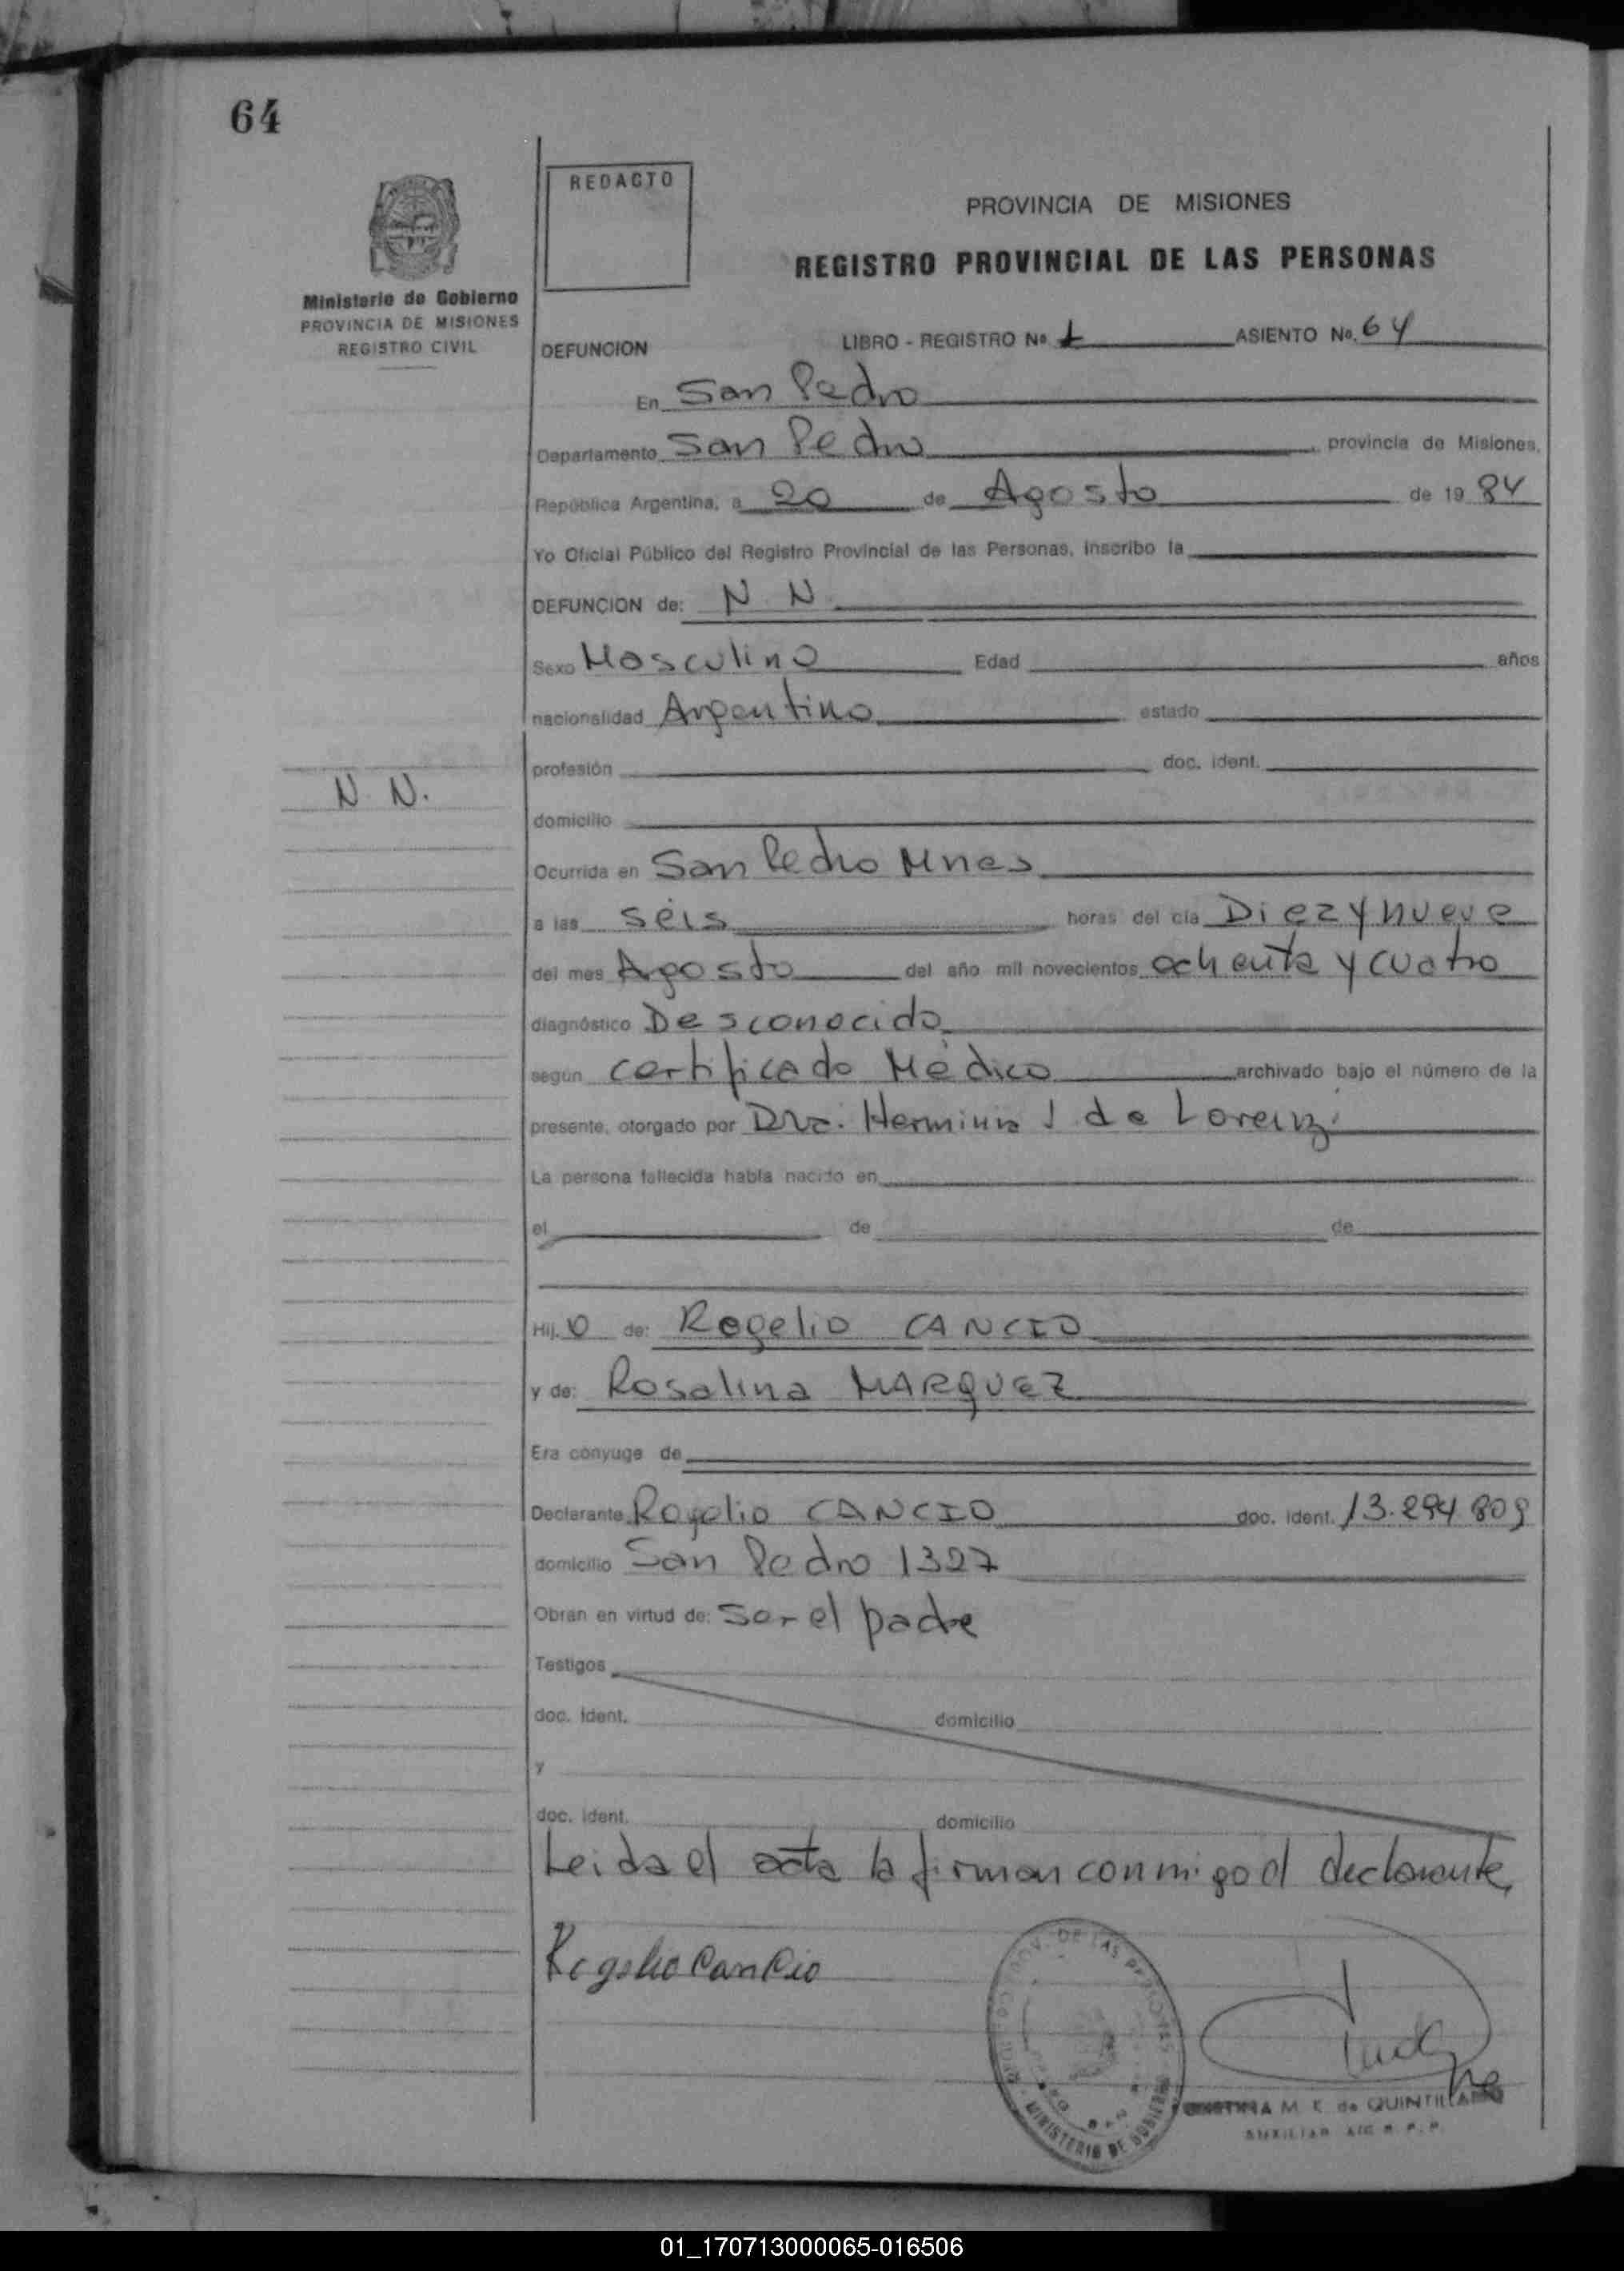 64
REDACTO
PROVINCIA DE MISIONES
REGISTRO PROVINCIAL DE LAS PERSONAS
Ministerio de Gobierno
PROVINCIA DE MISIONES
REGISTRO CIVIL
DEFUNCION LIBRO - REGISTRO No 1 ASIENTO No. 64
En San Pedro
Departamento San Pedro , provincia de Misiones,
República Argentina, a 20 de Agosto de 19 84
Yo Oficial Público del Registro Provincial de las Personas, inscribo la
DEFUNCION de: N. N.
Sexo Masculino Edad años
nacionalidad Argentino estado
profesión doc. ident.
N. N.
domicilio
Ocurrida en San Pedro Mnes
a las seis horas del día Diez y nueve
del mes Agosto del año mil novecientos ochenta y cuatro
diagnóstico Desconocido
según certificado Médico archivado bajo el número de la
presente, otorgado por Dra. Herminia J. de Lorenzi
La persona fallecida había nacido en
el de de
Hij o de: Rogelio CANCIO
y de: Rosalina MARQUEZ
Era cónyuge de
Declarante Rogelio CANCIO doc. ident. 13.294.809
domicilio San Pedro 1327
Obran en virtud de: ser el padre
Testigos
doc. ident. domicilio
y
doc. ident. domicilio
Leida el acta la firman conmigo el declarante,
Rogelio Cancio
DE LAS
MINISTERIO DE GOBIERNO
M. E. de QUINTILLANO
AUXILIAR
01_170713000065-016506